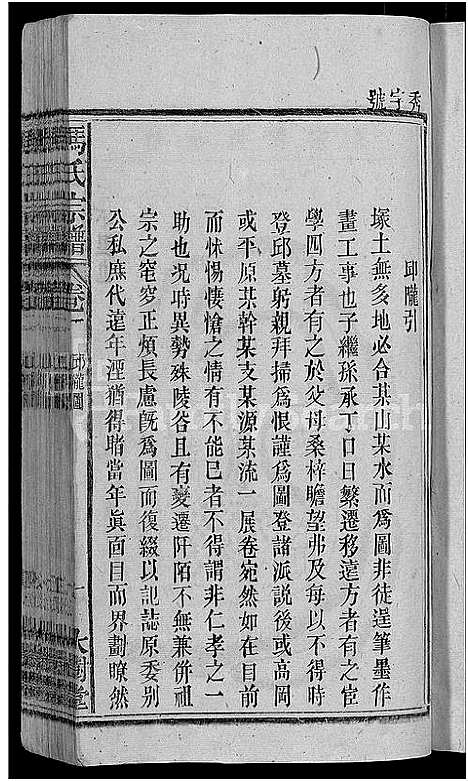 秀字號
邱隴引
塚土無多地必合某山某水而為圖非徒逞筆墨作
畫工事也子繼孫承丁口日繁遷移遠方者有之宦
學四方者有之於父母桑梓瞻望弗及每以不得時
登邱墓躬親拜掃為恨謹為圖登諸派說後或高岡
或平原某幹某支某源某流一展卷宛然如在目前
而怵惕悽愴之情有不能已者不得謂非仁孝之一
助也況時異勢殊陵谷且有變遷阡陌不無兼併祖
宗之窀穸正煩長慮旣為圖而復綴以記誌原委別
公私庶代遠年湮猶得睹當年眞面目而界劃暋然
馮氏宗譜 卷一 邱隴圖